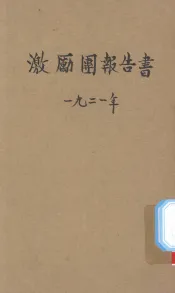 激勵團報告書
一九二一年